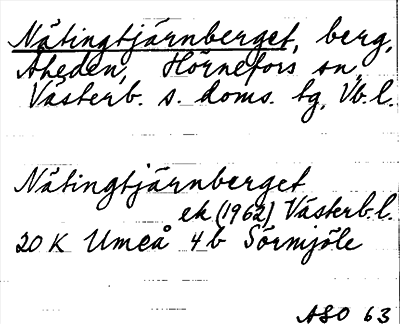 Nätingtjärnberget, berg,
Åheden, Hörnefors sn,
Västerb. s. doms. tg, Vb. l.
Nätingtjärnberget
ek (1962) Västerb. l.
20 K Umeå 4b Sörmjöle
ASO 63